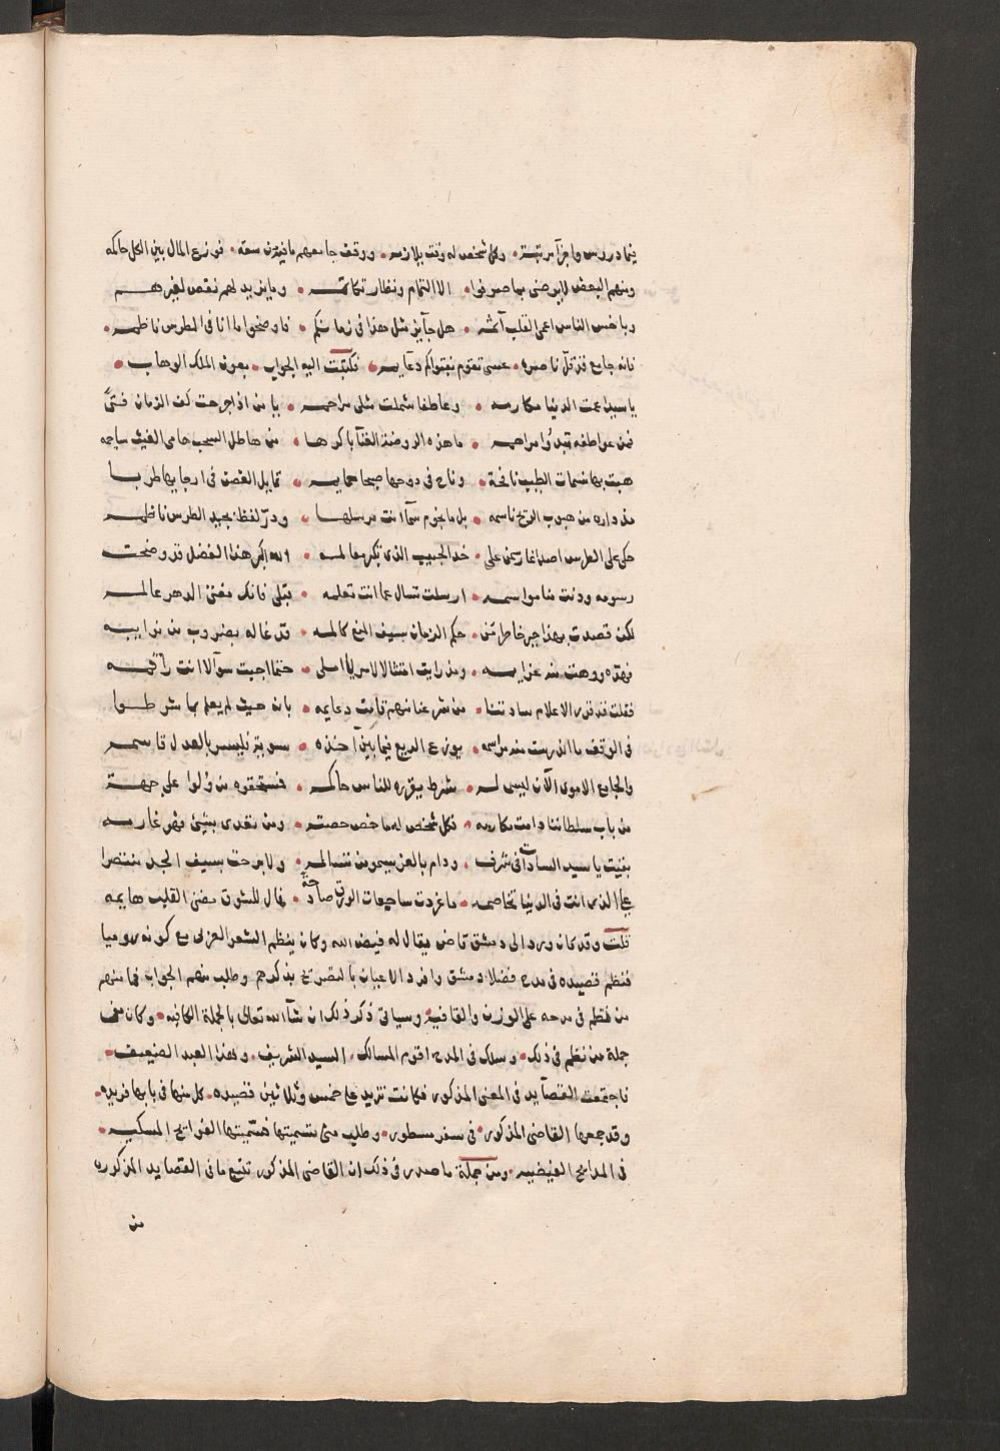 فيها دروس واجزآ مرتبة • وكل شخص له وقت يلازمه • ووقف جامعهم ما فيه من سعة • فوزع المال بين الكل حاكمه
ومنهم البعض لا يرضى بما صرفوا • الا التمام ونظار تكاتمه • وما يزيد لهم نقص لغيرهم
وباخس الناس اعمى القلب آثمه • هل جآيز مثل هذا في زمانكم • فاوضحوا ما انا في الطرس ناظمه •
فانه جامع قد قل ناصره • عسى تقوم بفتواكم دعايمه • فكتبت اليه الجواب • بعون الملك الوهاب •
يا سيدا عمت الدنيا مكارمه • وعاطفا شملت مثلي مراحمه • يا من اذا جرحت كف الزمان فتىً
فمن عواطفه تبدوا مراحمه • ما هذه الروضة الغنآ باكرها • من هاطل السحب هامي الغيث ساجمه
هبت بها نسمات الطيب نافحة • وناح في دوحها صبحا حمايمه • تمايل الغصن في ارجايها طربا
مذ داره من هبوب الريح ناسمه • بل ما نجوم سمآ انت مرسلها • ودرّ لفظ بجيد الطرس ناظمه
حكى على الطرس اصداغا رسمن على • خد الحبيب الذي تبكر معالمه • الله اكبر هذا الفضل قد وضحت
رسومه ودنت منا مواسمه • ارسلت تسال عما انت تعلمه • قبلي فانك مفتى الدهر عالمه
لكن قصدت بهذا جبر خاطر من • حكم الزمان بسيف المنع كالمه • قد غاله بضروب من نوايبه
فهدّه ووهت منه عزايمه • ومذ رايت امتثال الامر لي اسلى • حتما اجبت سوآلا انت راقمه
فقلت قد قرر الاعلام سادتنا • من شرعنا منهم قامت دعايمه • بان حيث لم يعلم بما شرطوا
في الوقف ما اندرست منه مراسمه • يوزع الريع فيما بين آخذه • سوية فليسر بالعدل قاسمه
والجامع الاموي الآن ليس له • شرط يقرره للناس حاكمه • فمستحقوه من ولوا على جهة
من باب سلطاننا دامت مكارمه • فكل شخص له ما خص حصته • ومن تعدى بشئ فهو غارمه
بقيت يا سيد السادات في شرف • ودام بالعز يسمو من تسالمه • ولا برحت بسيف الجد منتصرا
على الذي انت في الدنيا تخاصمه • ما غردت ساجعات الورق صادحة • فمال للشوق مضنى القلب هايمه
قلت وقد كان ورد الى دمشق قاض يقال له فيض الله وكان ينظم الشعر العربي مع كونه روميا
فنظم قصيده في مدح فضلا دمشق وافرد الاعيان بالتصريح بذكرهم وطلب منهم الجواب فما منهم
من نظم في مدحه على الوزن والقافية وسياتي ذكر ذلك ان شآ الله تعالى بالجملة الكافيه • وكان من
جملة من نظم في ذلك • وسلك في المدح اقوم المسالك • السيد الشريف • وهذا العبد الضعيف •
فاجتمعت القصآيد في المعنى المذكور فكانت تزيد على خمس وثلاثين قصيده • كل منها في بابها فريده •
وقد جمعها القاضي المذكور • في سفر مسطور • وطلب مني تسميتها فسميتها الفوايح المسكيه •
في المدايح الفيضيه • ومن جملة ما صدر في ذلك ان القاضي المذكور تتبع ما في القصايد المذكوره
من